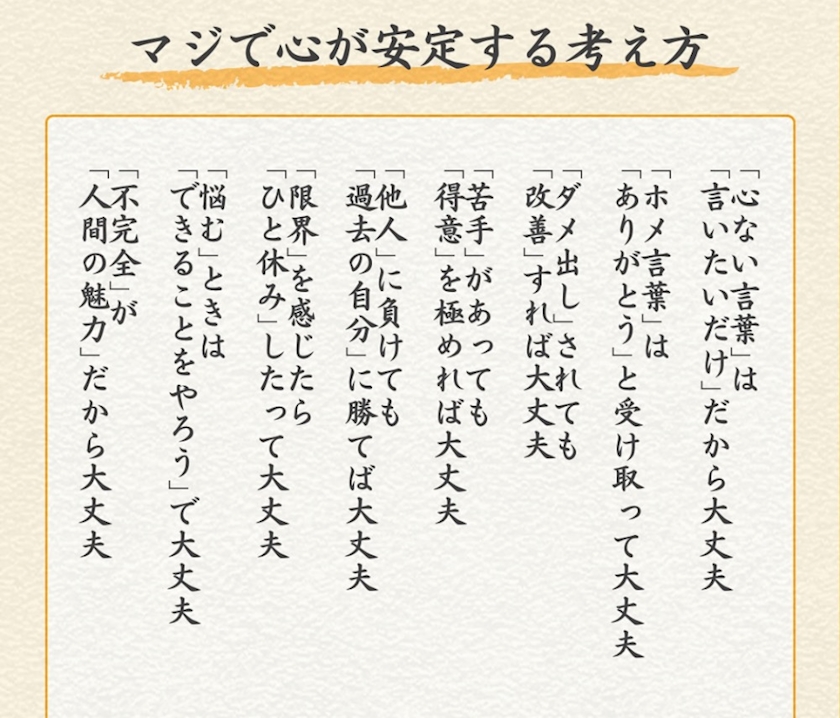 マジで心が安定する考え方
「心ない言葉」は
「言いたいだけ」だから大丈夫
「ホメ言葉」は
「ありがとう」と受け取って大丈夫
「ダメ出し」されても
「改善」すれば大丈夫
「苦手」があっても
「得意」を極めれば大丈夫
「他人」に負けても
「過去の自分」に勝てば大丈夫
「限界」を感じたら
「ひと休み」したって大丈夫
「悩む」ときは
「できることをやろう」で大丈夫
「不完全」が
「人間の魅力」だから大丈夫